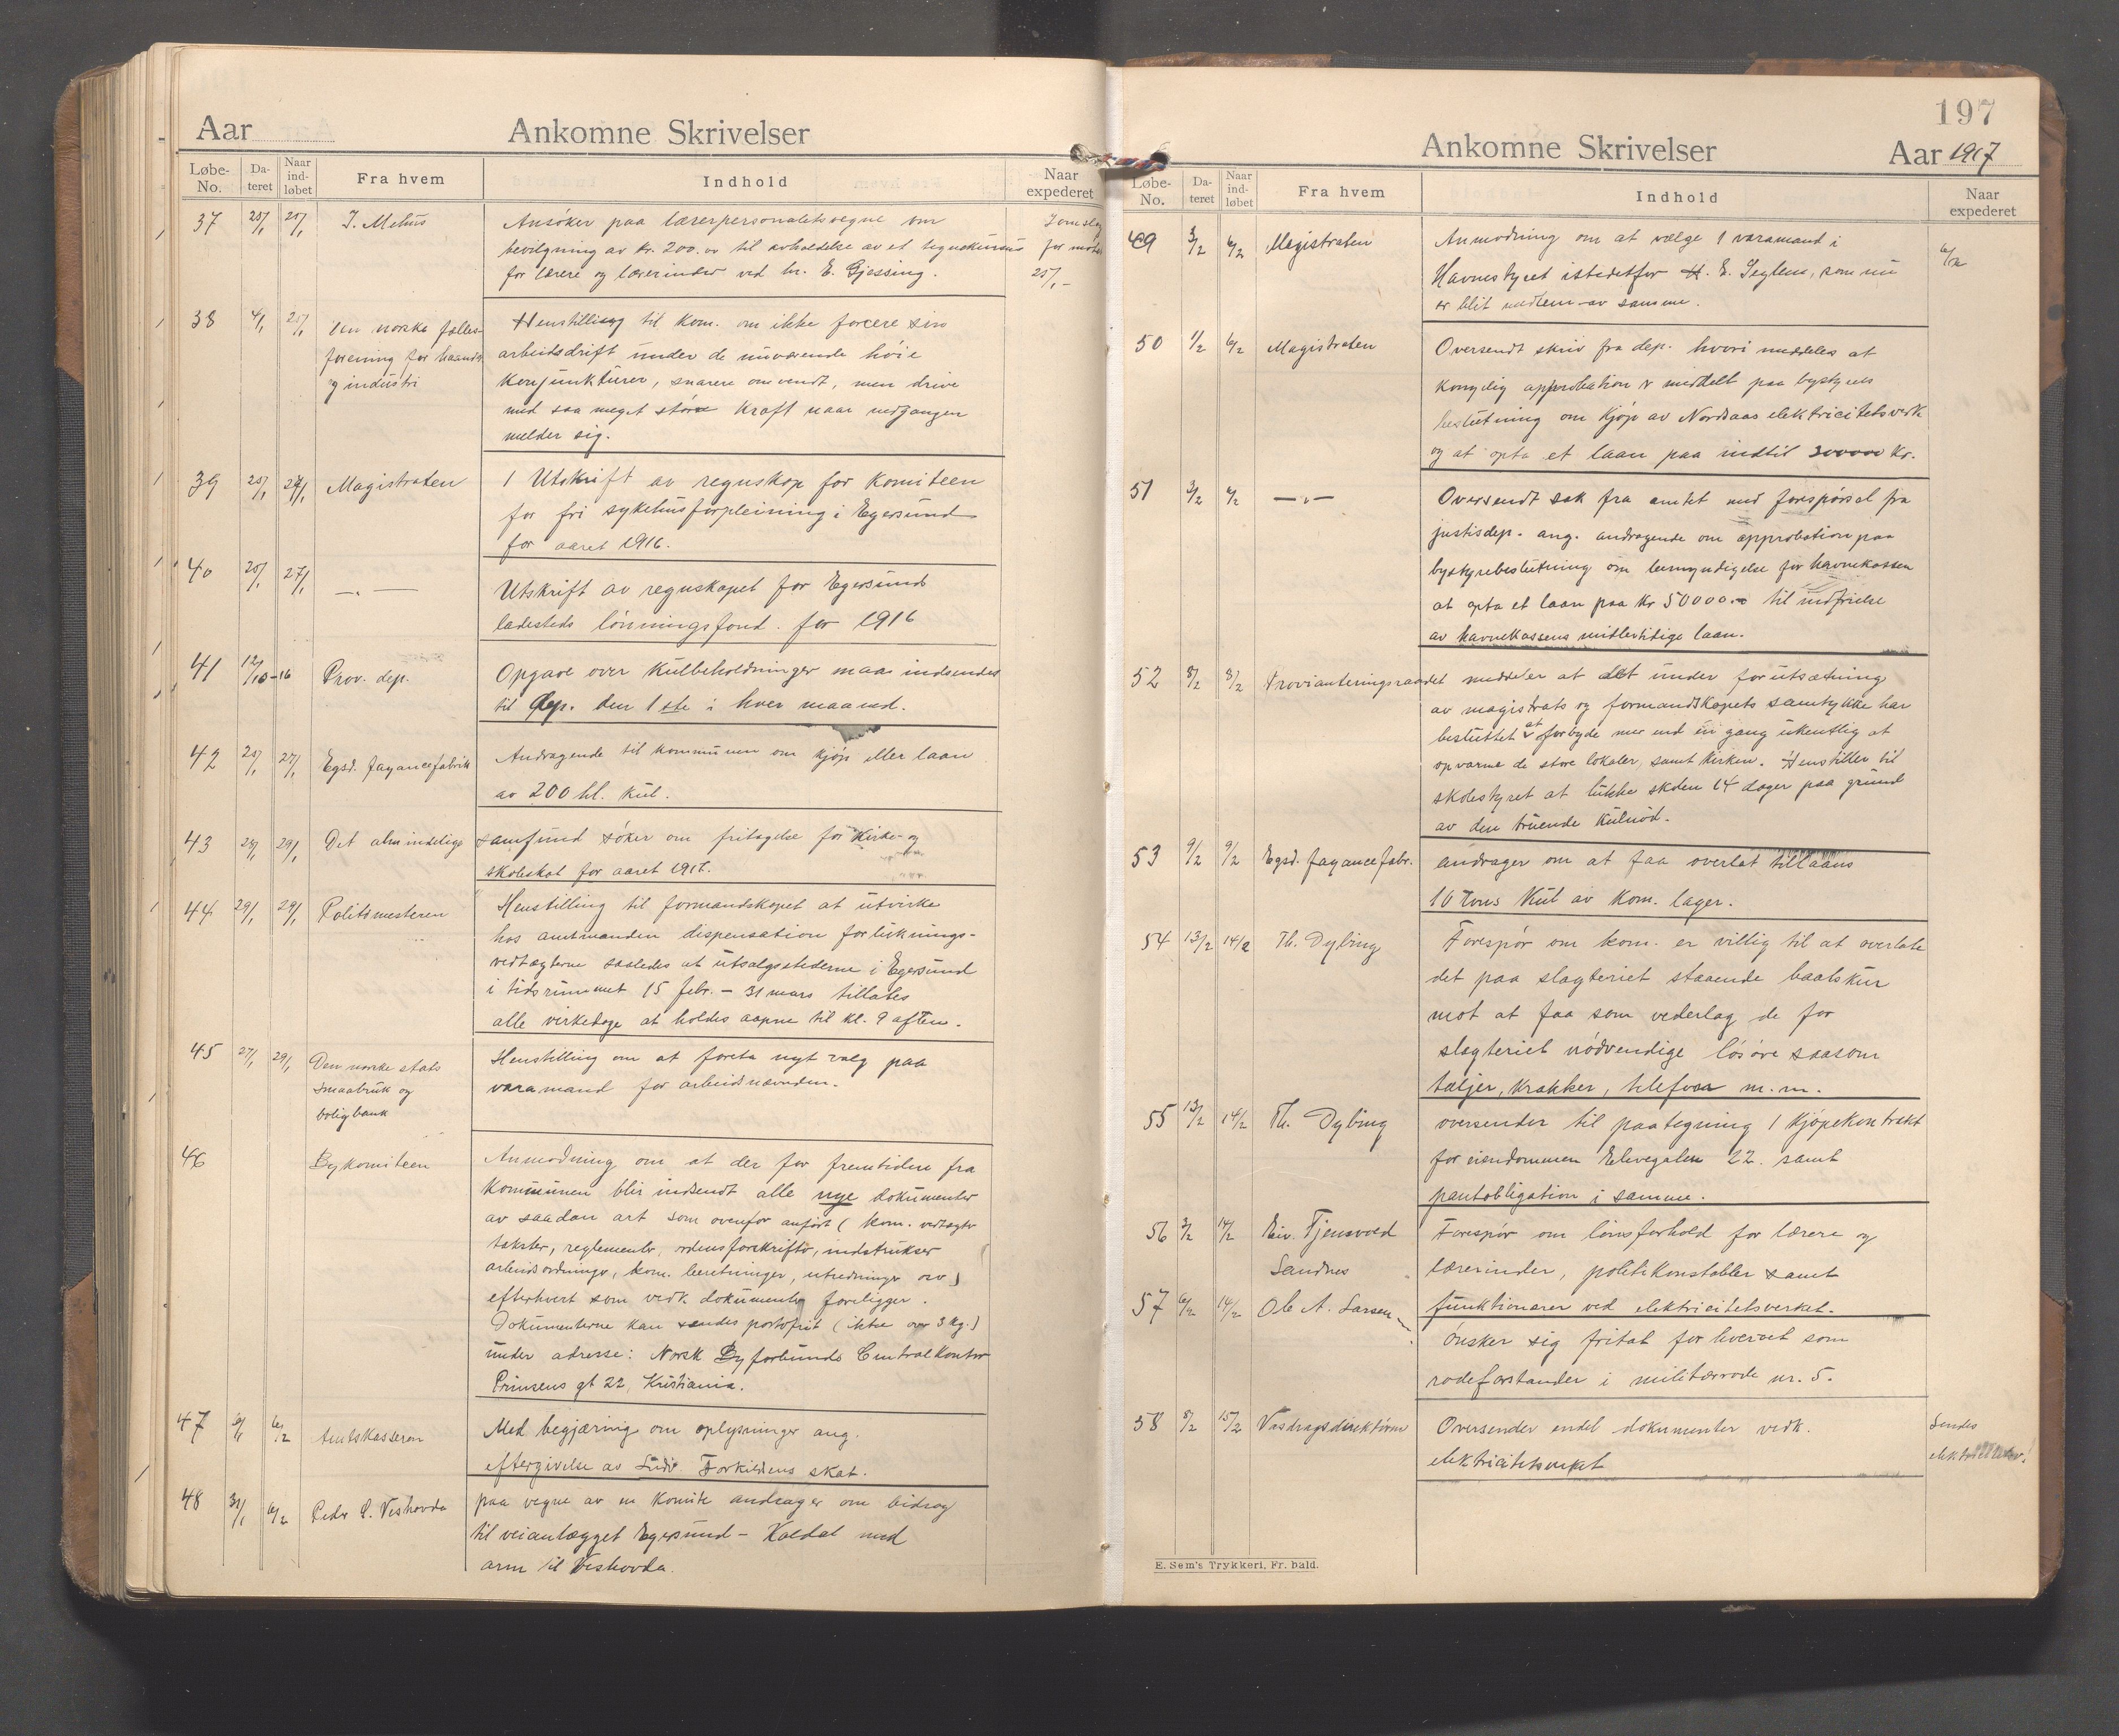 Aar
Ankomne Skrivelser
Løbe-No. Dateret Naar indløbet Fra hvem Indhold Naar expederet
37 25/1 25/1 I. Mehus Ansøker paa lærerpersonalets vegne om
bevilgning av kr. 200.00 til avholdelse av et tegnekursus
for lærere og lærerinder ved hr. E. Gjessing.
I omslag
for møte
25/1 -
38 4/1 25/1 Den norske fælles-
forening for haandv.
og industri
Henstilling til kom. om ikke forcere sin
arbeidsdrift under de nuværende høie
konjunkturer, snarere omvendt, men drive
med saa meget større kraft naar nedgangen
melder sig.
39 25/1 27/1 Magistraten 1 Utskrift av regnskap for komiteen
for fri sykehusforpleining i Egersund
for aaret 1916.
40 25/1 27/1 —„— Utskrift av regnskapet for Egersund
ladesteds lønningsfond for 1916
41 12/10-16 Prov. dep. Opgave over kulbeholdninger maa indsendes
til dep. den 1ste i hver maaned.
42 25/1 27/1 Egsd. fayancefabrik Andragende til kommunen om kjøp eller laan
av 200 hl. kul.
43 29/1 Det almindelige samfund søker om fritagelse for kirke- og
skoleskat for aaret 1917.
44 29/1 29/1 Politimesteren Henstilling til formandskapet at utvirke
hos amtmanden dispensation for luknings-
vedtægterne saaledes at utsalgsstederne i Egersund
i tidsrummet 15 febr. - 31 mars tillates
alle virkedage at holdes aapne til kl. 9 aften.
45 27/1 29/1 Den norske stats
smaabruk og
boligbank
Henstilling om at foreta nyt valg paa
varamand for arbeidsnævnden.
46 Bykomiteen Anmodning om at der for fremtiden fra
kommunen blir indsendt alle nye dokumenter
av saadan art som ovenfor anført (kom. vedtægter
takster, reglementer, ordensforskrifter, instrukser
arbeidsordninger, kom. beretninger, utredninger osv)
efterhvert som vedk. dokumenter foreligger.
Dokumenterne kan sendes portofrit (ikke over 3 kg.)
under adresse: Norsk Byforbunds Centralkontor
Prinsens gt 22, Kristiania.
47 6/2 Amtskasseren Med begjæring om oplysninger ang.
eftergivelse av Ludv. Torkildsens skat.
48 31/1 6/2 Peder C. Veshovda paa vegne av en komite andrager om bidrag
til veianlægget Egersund - Koldal med
arm til Veshovda.
197
Ankomne Skrivelser
Aar 1917
Løbe-No. Dateret Naar indløbet Fra hvem Indhold Naar expederet
49 3/2 6/2 Magistraten Anmodning om at vælge 1 varamand i
Havnestyret istedetfor H. E. Seglem, som nu
er blit medlem av samme.
6/2
50 1/2 6/2 Magistraten Oversendt skriv fra dep. hvori meddeles at
kongelig approbation er meddelt paa bystyrets
beslutning om kjøp av Nordaas elektricitetsverk
og at opta et laan paa indtil 300000 kr.
51 3/2 6/2 —„— Oversendt sak fra amtet med forespørsel fra
justisdep. ang. andragende om approbation paa
bystyrebeslutning om bemyndigelse for havnekassen
at opta et laan paa kr 50000.- til indfrielse
av havnekassens midlertidige laan.
52 8/2 8/2 Provianteringsraadet meddeler at det under forutsætning
av magistrats og formandskapets samtykke har
besluttet at forbyde mer end én gang ukentlig at
opvarme de store lokaler, samt kirken. Henstiller til
skolestyret at lukke skolen 14 dager paa grund
av den truende kulnød.
53 9/2 9/2 Egsd. fayancefabr. andrager om at faa overlat tillaans
10 Tons kul av kom. lager.
54 13/2 14/2 Th. Dybing Forespør om kom. er villig til at overlate
det paa slagteriet staaende baatskur
mot at faa som vederlag de for
slagteriet nødvendige løsøre saasom
taljer, krakker, telefon m.m.
55 13/2 14/2 Th. Dybing oversender til paategning 1 kjøpekontrakt
for eiendommen Elvegaten 22. samt
pantobligation i samme.
56 3/2 14/2 Eiv. Tjensvold
Sandnes
Forespør om lønsforhold for lærere og
lærerinder, politikonstabler samt
funktionærer ved elektricitetsverket.
57 6/2 14/2 Ole A. Larsen
ønsker sig fritat for hvervet som
rodeforstander i militærrode nr. 5.
58 8/2 15/2 Vasdragsdirektøren Oversender endel dokumenter vedk.
elektricitetsverket
Sendes
E. Sem's Trykkeri, Fr. hald.